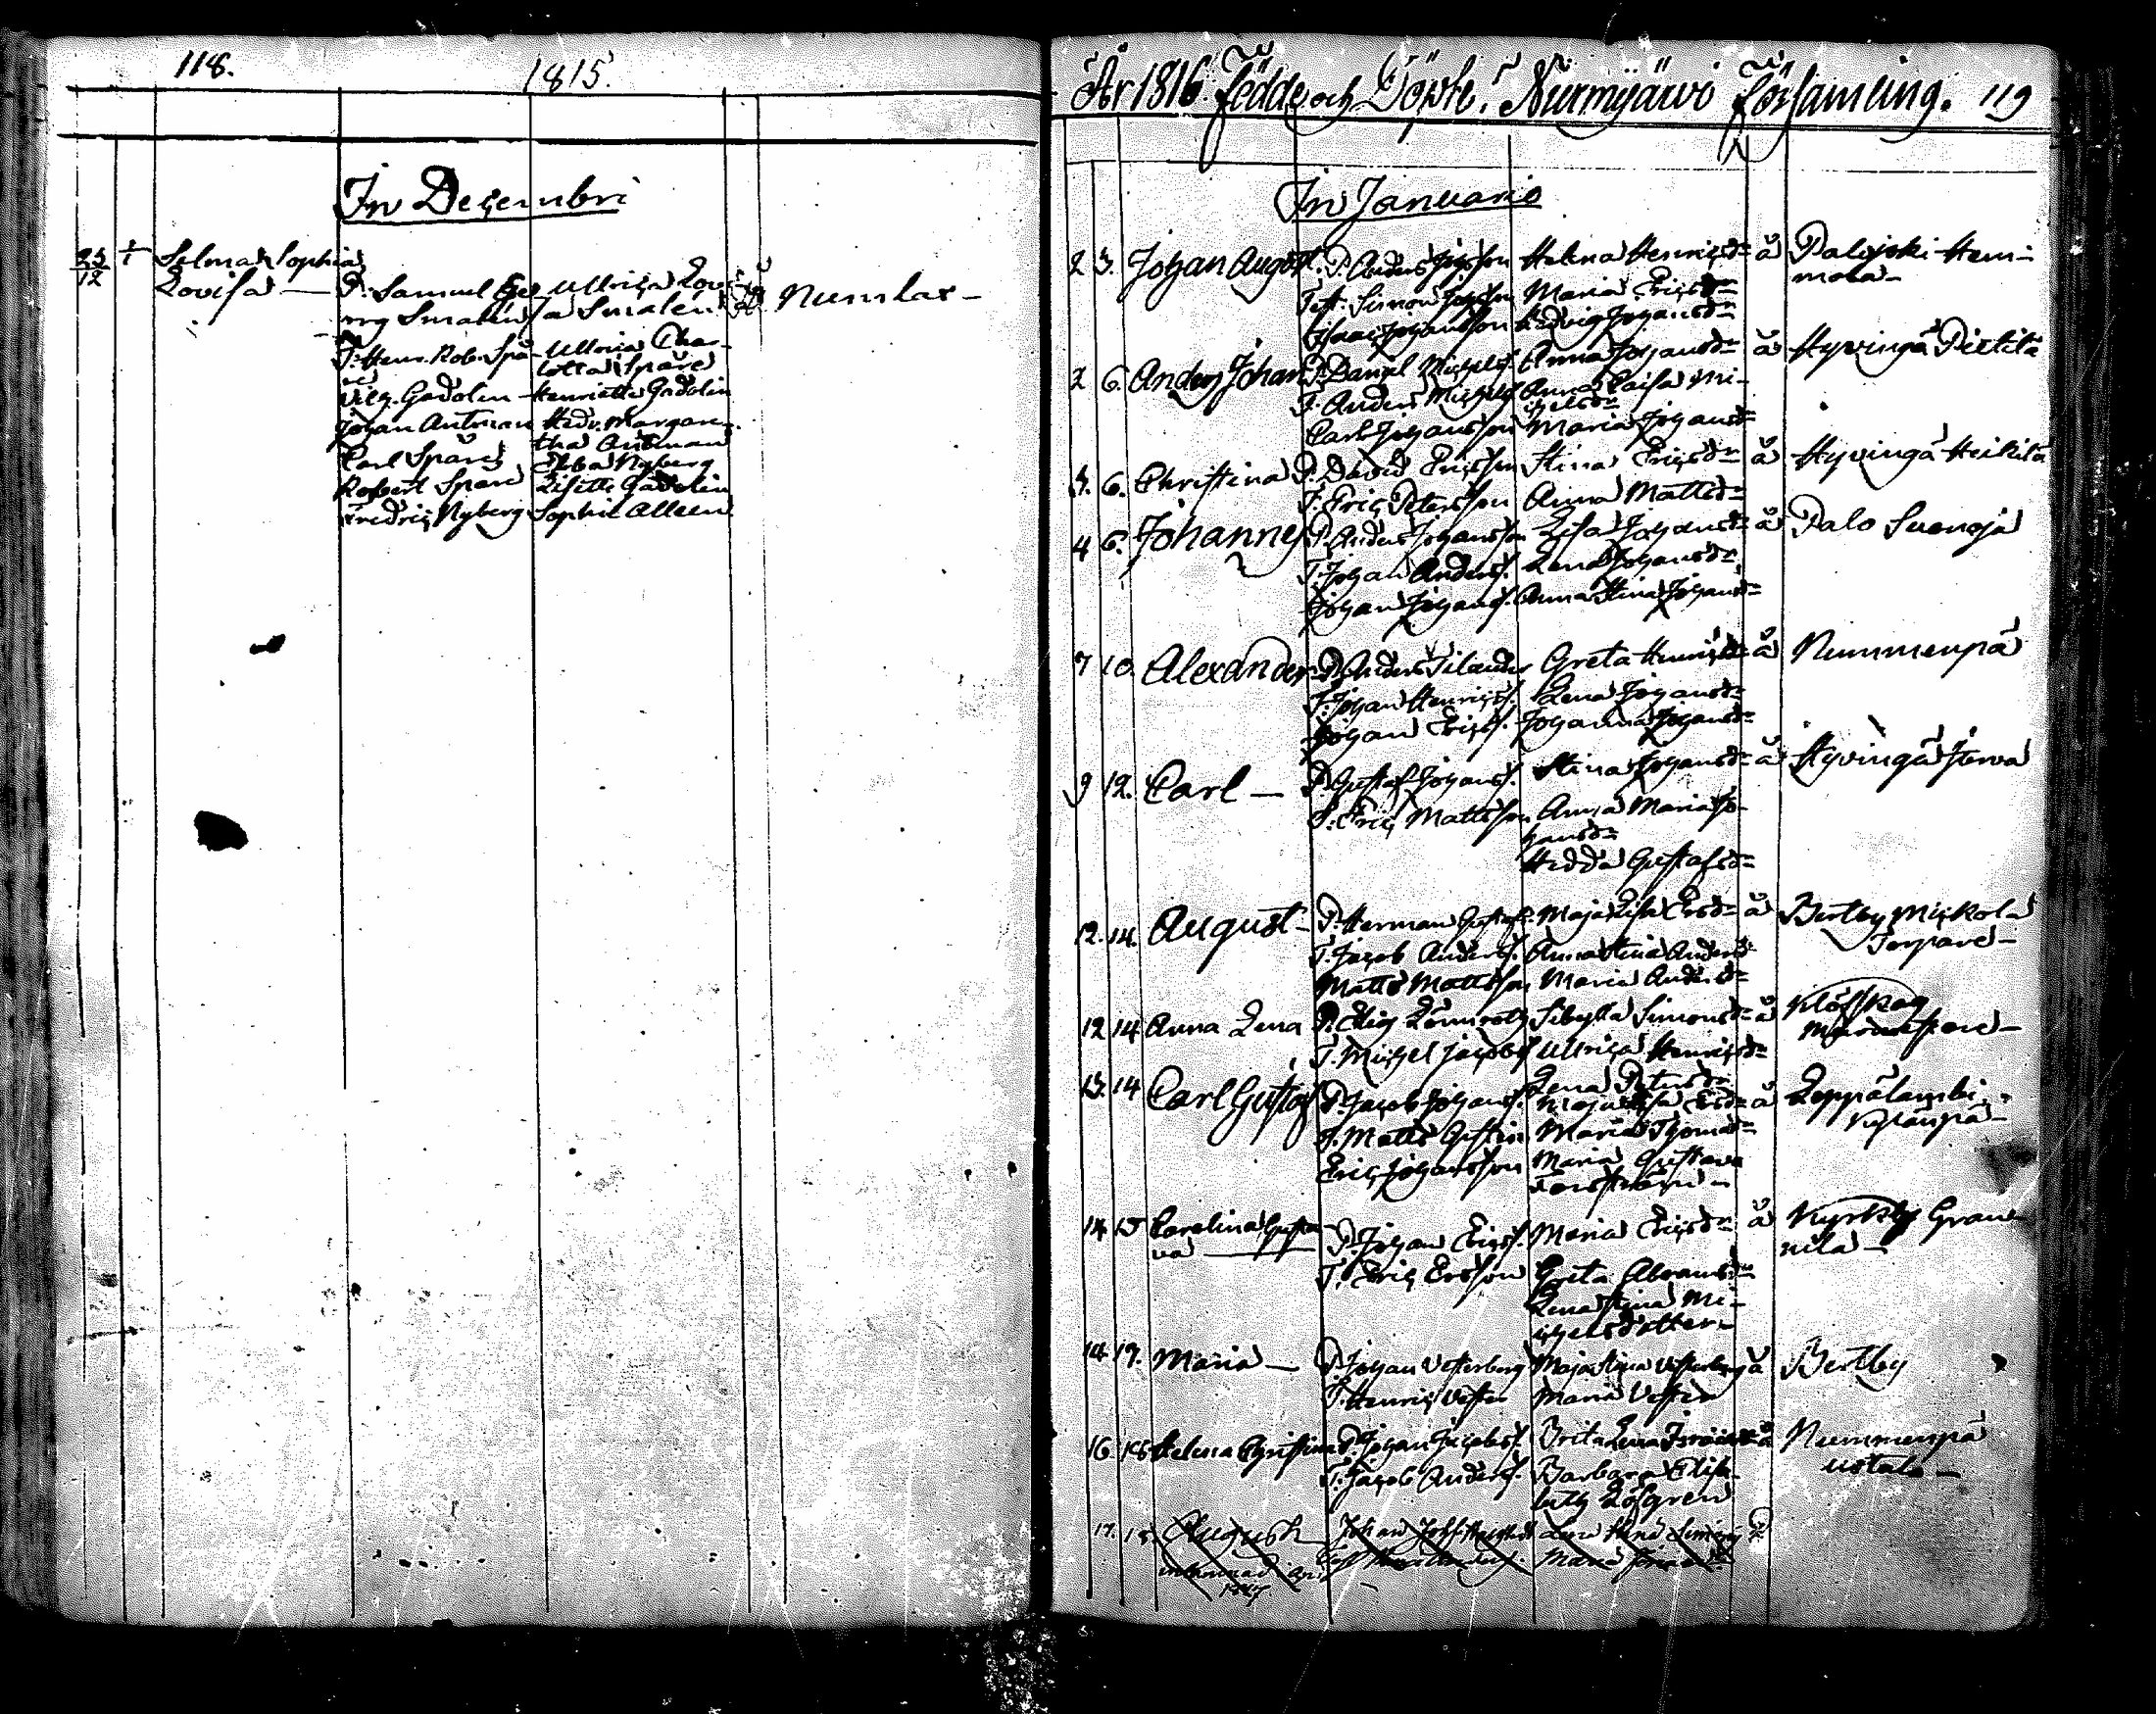 118.
1815.
In Decembri
23/12 + Selma Sophia
Lovisa — P: Samuel Ge- Ullrica Lov- å Numlax -
org Smalén sa Smalén
T: Henr. Rob. Spå- Ullrica Char-
re lotta Spåre
Vilh. Gadolin Henriette Gadolin
Johan Antman Hedv. Margare-
tha Antman
Carl Spåre Ebba Nyberg
Robert Spåre Lisette Gadolin
Fredric Nyberg Sophie Alleen
År 1816 Födde och Döpte i Nurmijärvi Församling. 119
In Januario
2 3. Johan August. P. Anders Helena Henricsd= å Palojoki Hem-
mola -
Test: Simon Maria Ericsd=
Isaac Johansson Hedvig Johansd=
2 6. Anders Johan P. Daniel Michels. Anna Johansd= å Hyvingä Pietilä
T. Anders Michels. Anna Caisa Mi-
chelsd=
Carl Johansson Maria Johansd=
3. 6. Christina P. David Ericsson Stina Ericsd= å Hyvingä Heikilä
T. Eric Petersson Anna Mattsd=
4 6. Johannes P. Anders Johansson Lisa Johansd= å Palo Suenoja
T. Johan Anders. Lena Johansd=
Johan Johans. Anna Stina Johansd=
7 10. Alexander P. Anders Silander Greta Henricsd= å Nummenpä
T. Johan Henrics. Lena Johansd=
Johan Erics. Johanna Johansd=
9 12. Carl — P. Gustaf Johans. Stina Johansd= å Hyvingä Jerva
T. Eric Mattsson Anna Maria Jo-
hansd=
Hedda Gustafsd=
12. 14. August - P. Herman Gustafs. Maja Lisa Ersd= å Bertby Mickola
Torpare -
T. Jacob Anders. Anna Stina Andersd=
Matts Mattsson Maria Andersd=
12 14 Anna Lena P. Eric Lönnroth Sibylla Simonsd= å Klöfskog
T. Michel Jacobs. Ullrica Henricsd=
Lena Petersd=
13. 14 Carl Gustaf P. Jacob Johans. Maja Lisa Ersd= å Leppälambi
T. Matts Maria Thomasd=
Eric Johansson Maria Gustava
14 15 Carolina Gusta-
va — P. Johan Erics. Maria Ericsd= å Kyrkby Gran-
nila -
T. Eric Ersson Greta Abramsd=
Lena Stina Mi-
chelsdotter -
14. 17. Maria — P. Johan Vesterberg Maja Stina Vesterberg å Bertby
T. Henric Vester Maria Vester
16. 18 Helena Christina P. Johan Jacobs. Brita Lena å Nummenpä
Uotala -
T. Jacob Anders. Barbara Elisa-
beth Löfgren
17. 18. August Johan Lena Stina
Maria